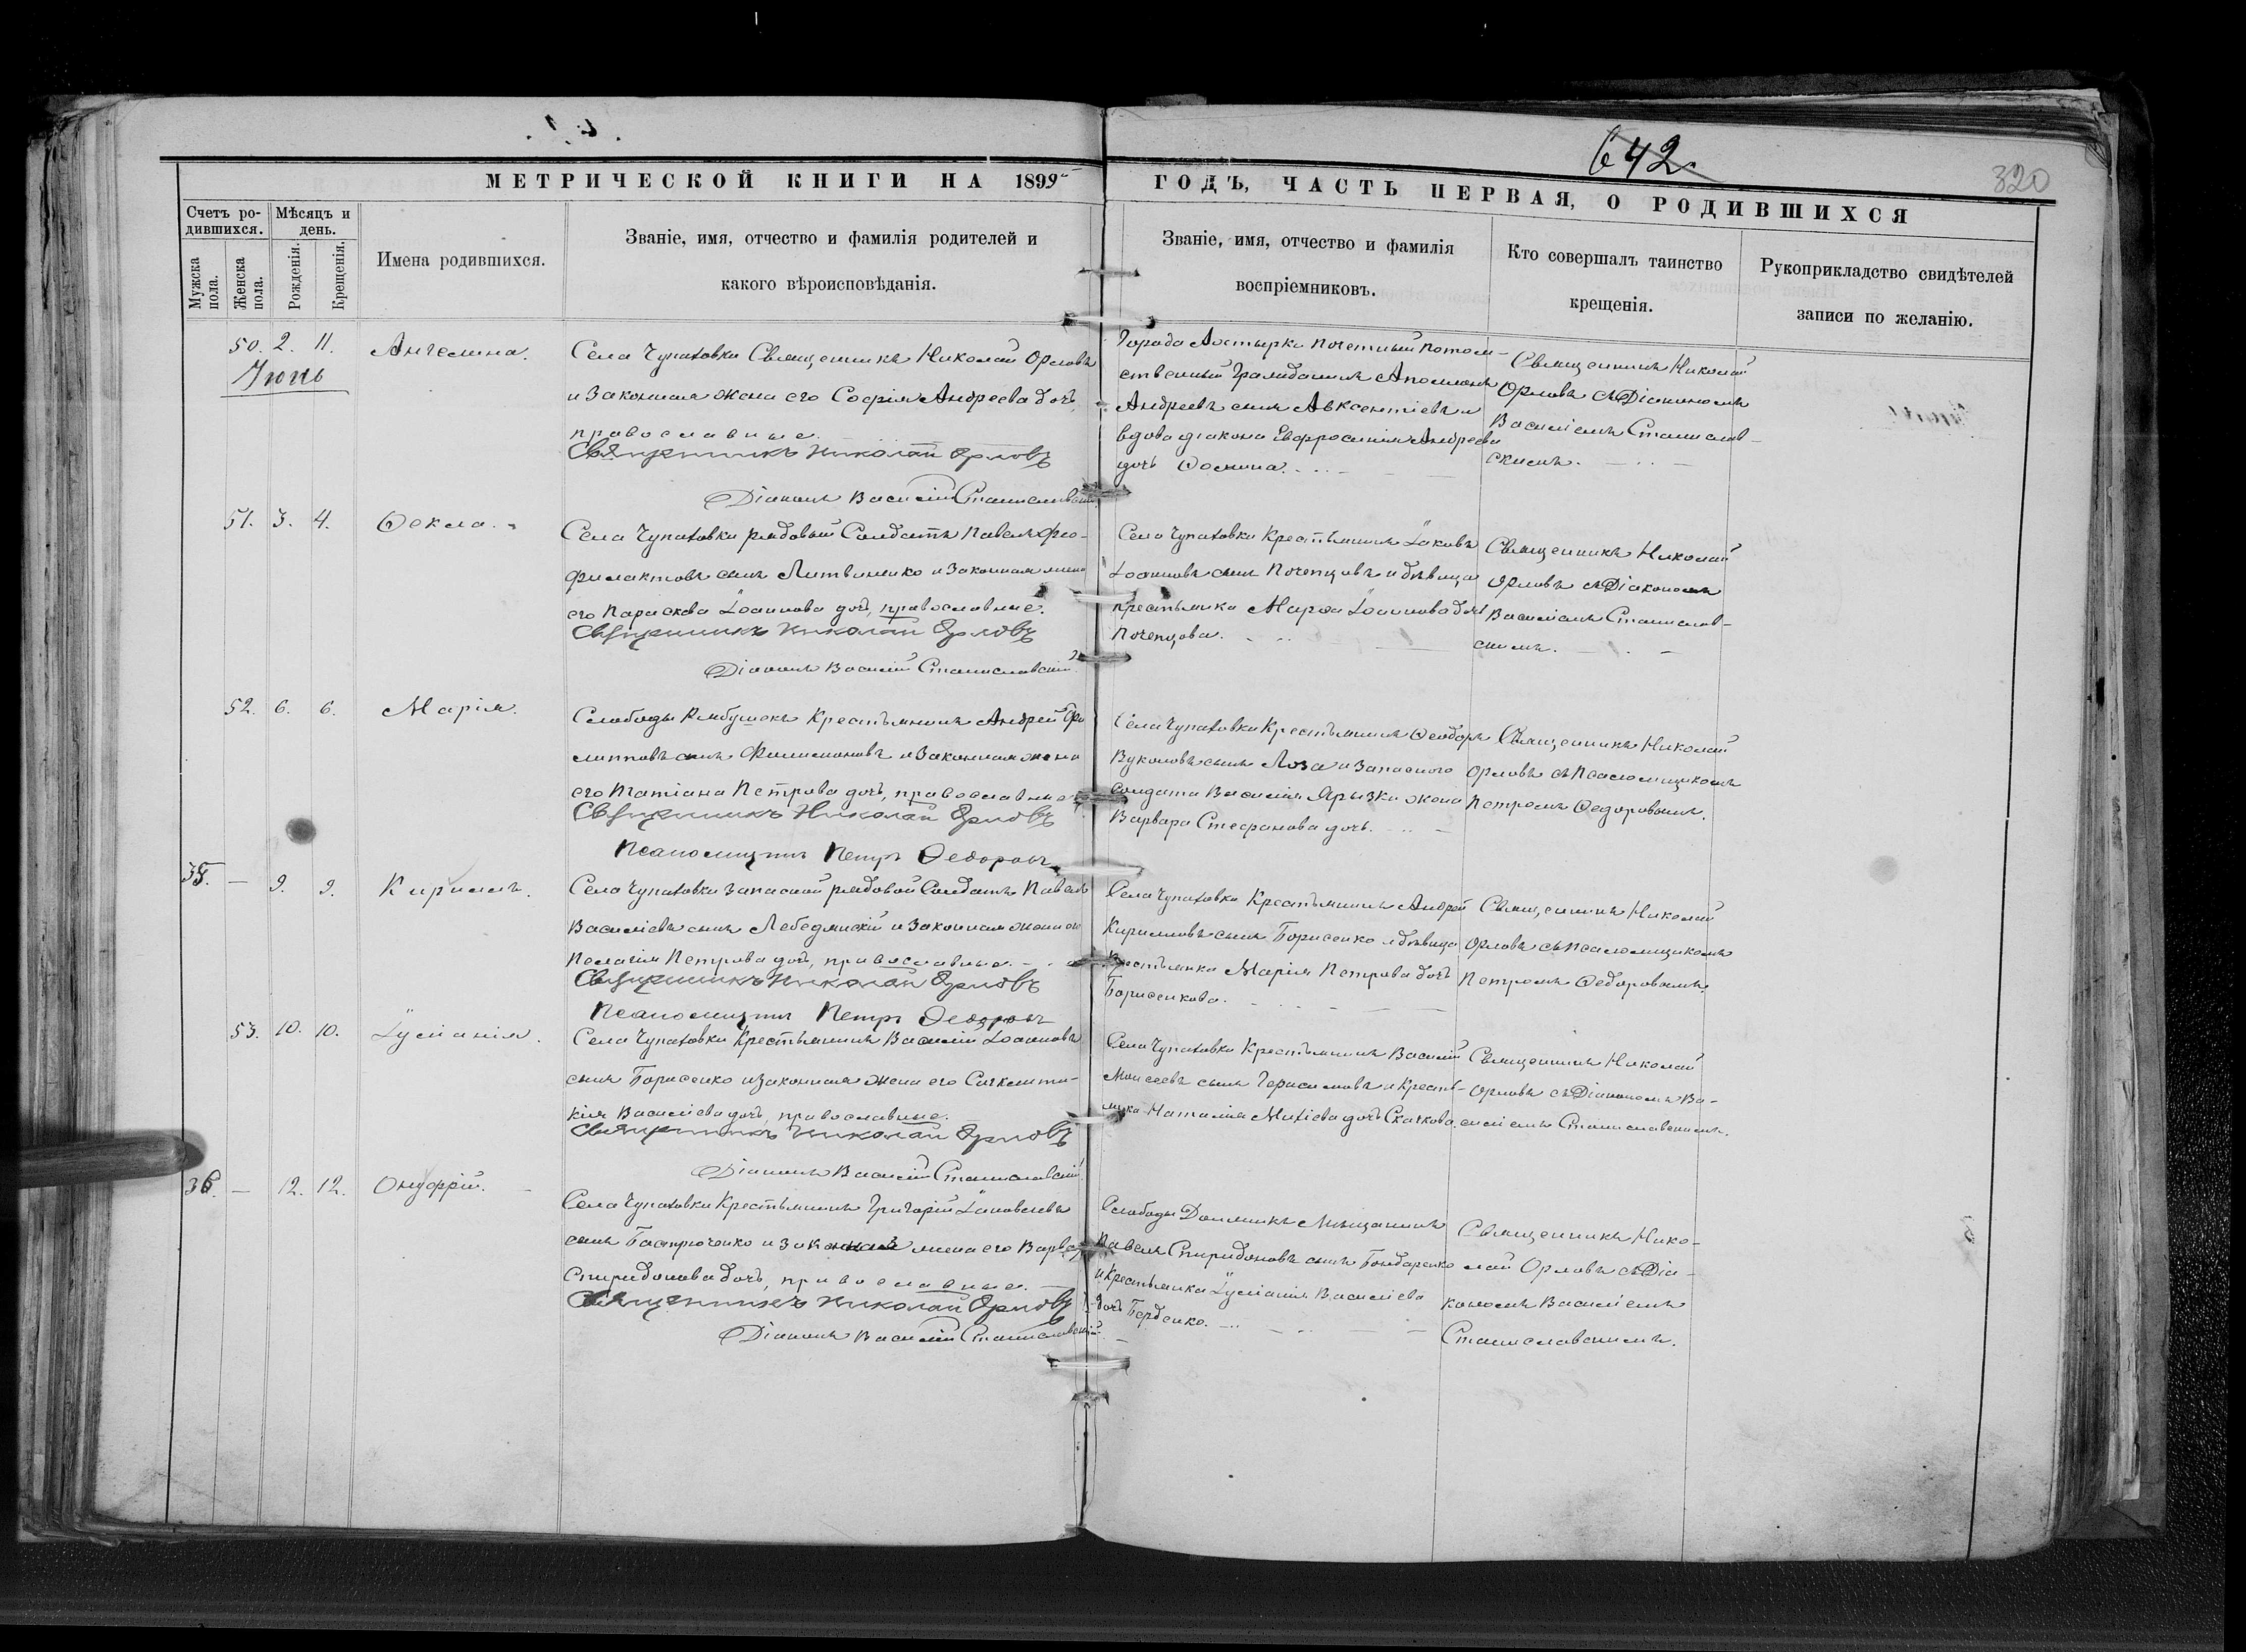 642.
320
МЕТРИЧЕСКОЙ КНИГИ НА 1899 ГОДЪ, ЧАСТЬ ПЕРВАЯ, О РОДИВШИХСЯ
Счетъ ро-
дившихся.
Мужска
пола.
Женска
пола.
Мѣсяцъ и
день.
Рожденія.
Крещенія.
Имена родившихся.
Званіе, имя, отчество и фамилія родителей и
какого вѣроисповѣданія.
Званіе, имя, отчество и фамилія
воспріемниковъ.
Кто совершалъ таинство
крещенія.
Рукоприкладство свидѣтелей
записи по желанію.
50. 2. 11. Ангелина.
Іюнь
Села Чупаховки Священникъ Николай Орловъ
и законная жена его Софія Андреева дочь,
православные.
Священникъ Николай Орловъ
Діаконъ Василій Станиславскій
Города Ахтырки почетный потом-
ственный гражданинъ Аполлонъ
Андреевъ сынъ Авксентіевъ и
вдова діакона Евфросинія Андреева
дочь Ѳомина.
Священникъ Николай
Орловъ съ Діакономъ
Василіемъ Станислав-
скимъ.
51. 3. 4. Ѳекла.
Села Чупаховки рядовый Солдатъ Павелъ Фео-
филактовъ сынъ Литвиненко и законная жена
его Параскева Іоаннова дочь, православные.
Священникъ Николай Орловъ
Діаконъ Василій Станиславскій
Села Чупаховки Крестьянинъ Іаковъ
Іоанновъ сынъ Почепцовъ и дѣвица
крестьянка Марѳа Іоаннова дочь
Почепцова.
Священникъ Николай
Орловъ съ Діакономъ
Василіемъ Станислав-
скимъ.
52. 6. 6. Марія.
Слободы Рябушекъ Крестьянинъ Андрей Фи
липповъ сынъ Филимоновъ и законная жена
его Татіана Петрова дочь, православные.
Священникъ Николай Орловъ
Псаломщикъ Петръ Ѳедоровъ
Села Чупаховки Крестьянинъ Ѳеодоръ
Вуколовъ сынъ Лоза и запасного
солдата Василія Ярызки жена
Варвара Стефанова дочь.
Священникъ Николай
Орловъ съ Псаломщикомъ
Петромъ Ѳедоровымъ.
35. — 9. 9. Кириллъ.
Села Чупаховки запасной рядовой Солдатъ Павелъ
Василіевъ сынъ Лебедянскій и законная жена его
Пелагія Петрова дочь, православные.
Священникъ Николай Орловъ
Псаломщикъ Петръ Ѳедоровъ
Села Чупаховки Крестьянинъ Андрей
Кирилловъ сынъ Борисенко и дѣвица
крестьянка Марія Петрова дочь
Борисенкова.
Священникъ Николай
Орловъ съ Псаломщикомъ
Петромъ Ѳедоровымъ.
53. 10. 10. Іуліанія.
Села Чупаховки Крестьянинъ Василій Іоанновъ
сынъ Борисенко и законная жена его Сигклити-
кія Василіева дочь, православные.
Священникъ Николай Орловъ
Діаконъ Василій Станиславскій
Села Чупаховки Крестьянинъ Василій
Моисеевъ сынъ Герасимовъ и Кресть-
янка Наталія Михіева дочь Скачкова.
Священникъ Николай
Орловъ съ Діакономъ Ва-
силіемъ Станиславскимъ.
36. — 12. 12. Онуфрій.
Села Чупаховки Крестьянинъ Григорій Іаковлевъ
сынъ Бастрюченко и законная жена его Варвара
Спиридонова дочь, православные.
Священникъ Николай Орловъ
Діаконъ Василій Станиславскій
Слободы мѣщанинъ
Павелъ Спиридоновъ сынъ Бондаренко
и Крестьянка Іуліанія Василіева
дочь Берденко.
Священникъ Нико-
лай Орловъ съ Діа-
кономъ Василіемъ
Станиславскимъ.